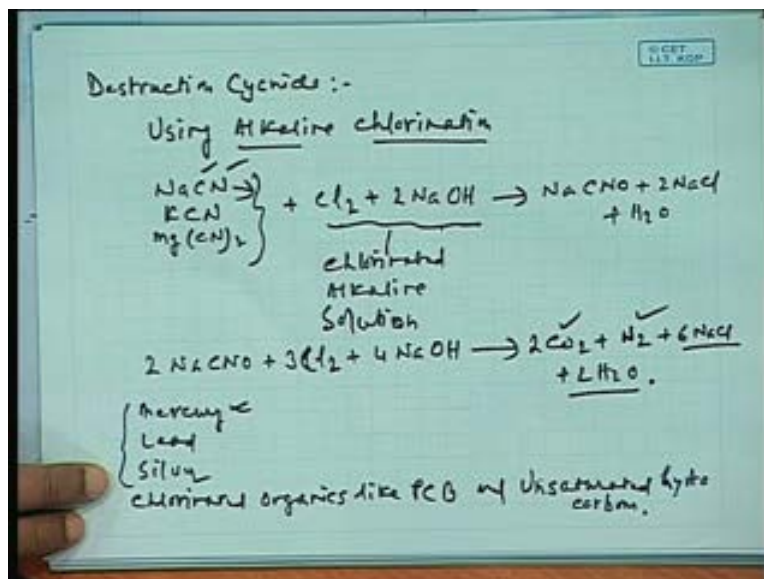 © CET
I.I.T. KGP
Destruction Cyanide :-
Using Alkaline chlorination
NaCN →
KCN
mg(CN)2
+ Cl2 + 2 NaOH → NaCNO + 2NaCl
+ H2O
chlorinated
Alkaline
Solution
2 NaCNO + 3Cl2 + 4 NaOH → 2CO2 + N2 + 6 NaCl
+ 2 H2O.
Mercury
Lead
Silver
chlorinated organics like PCB and Unsaturated hydro
carbon.